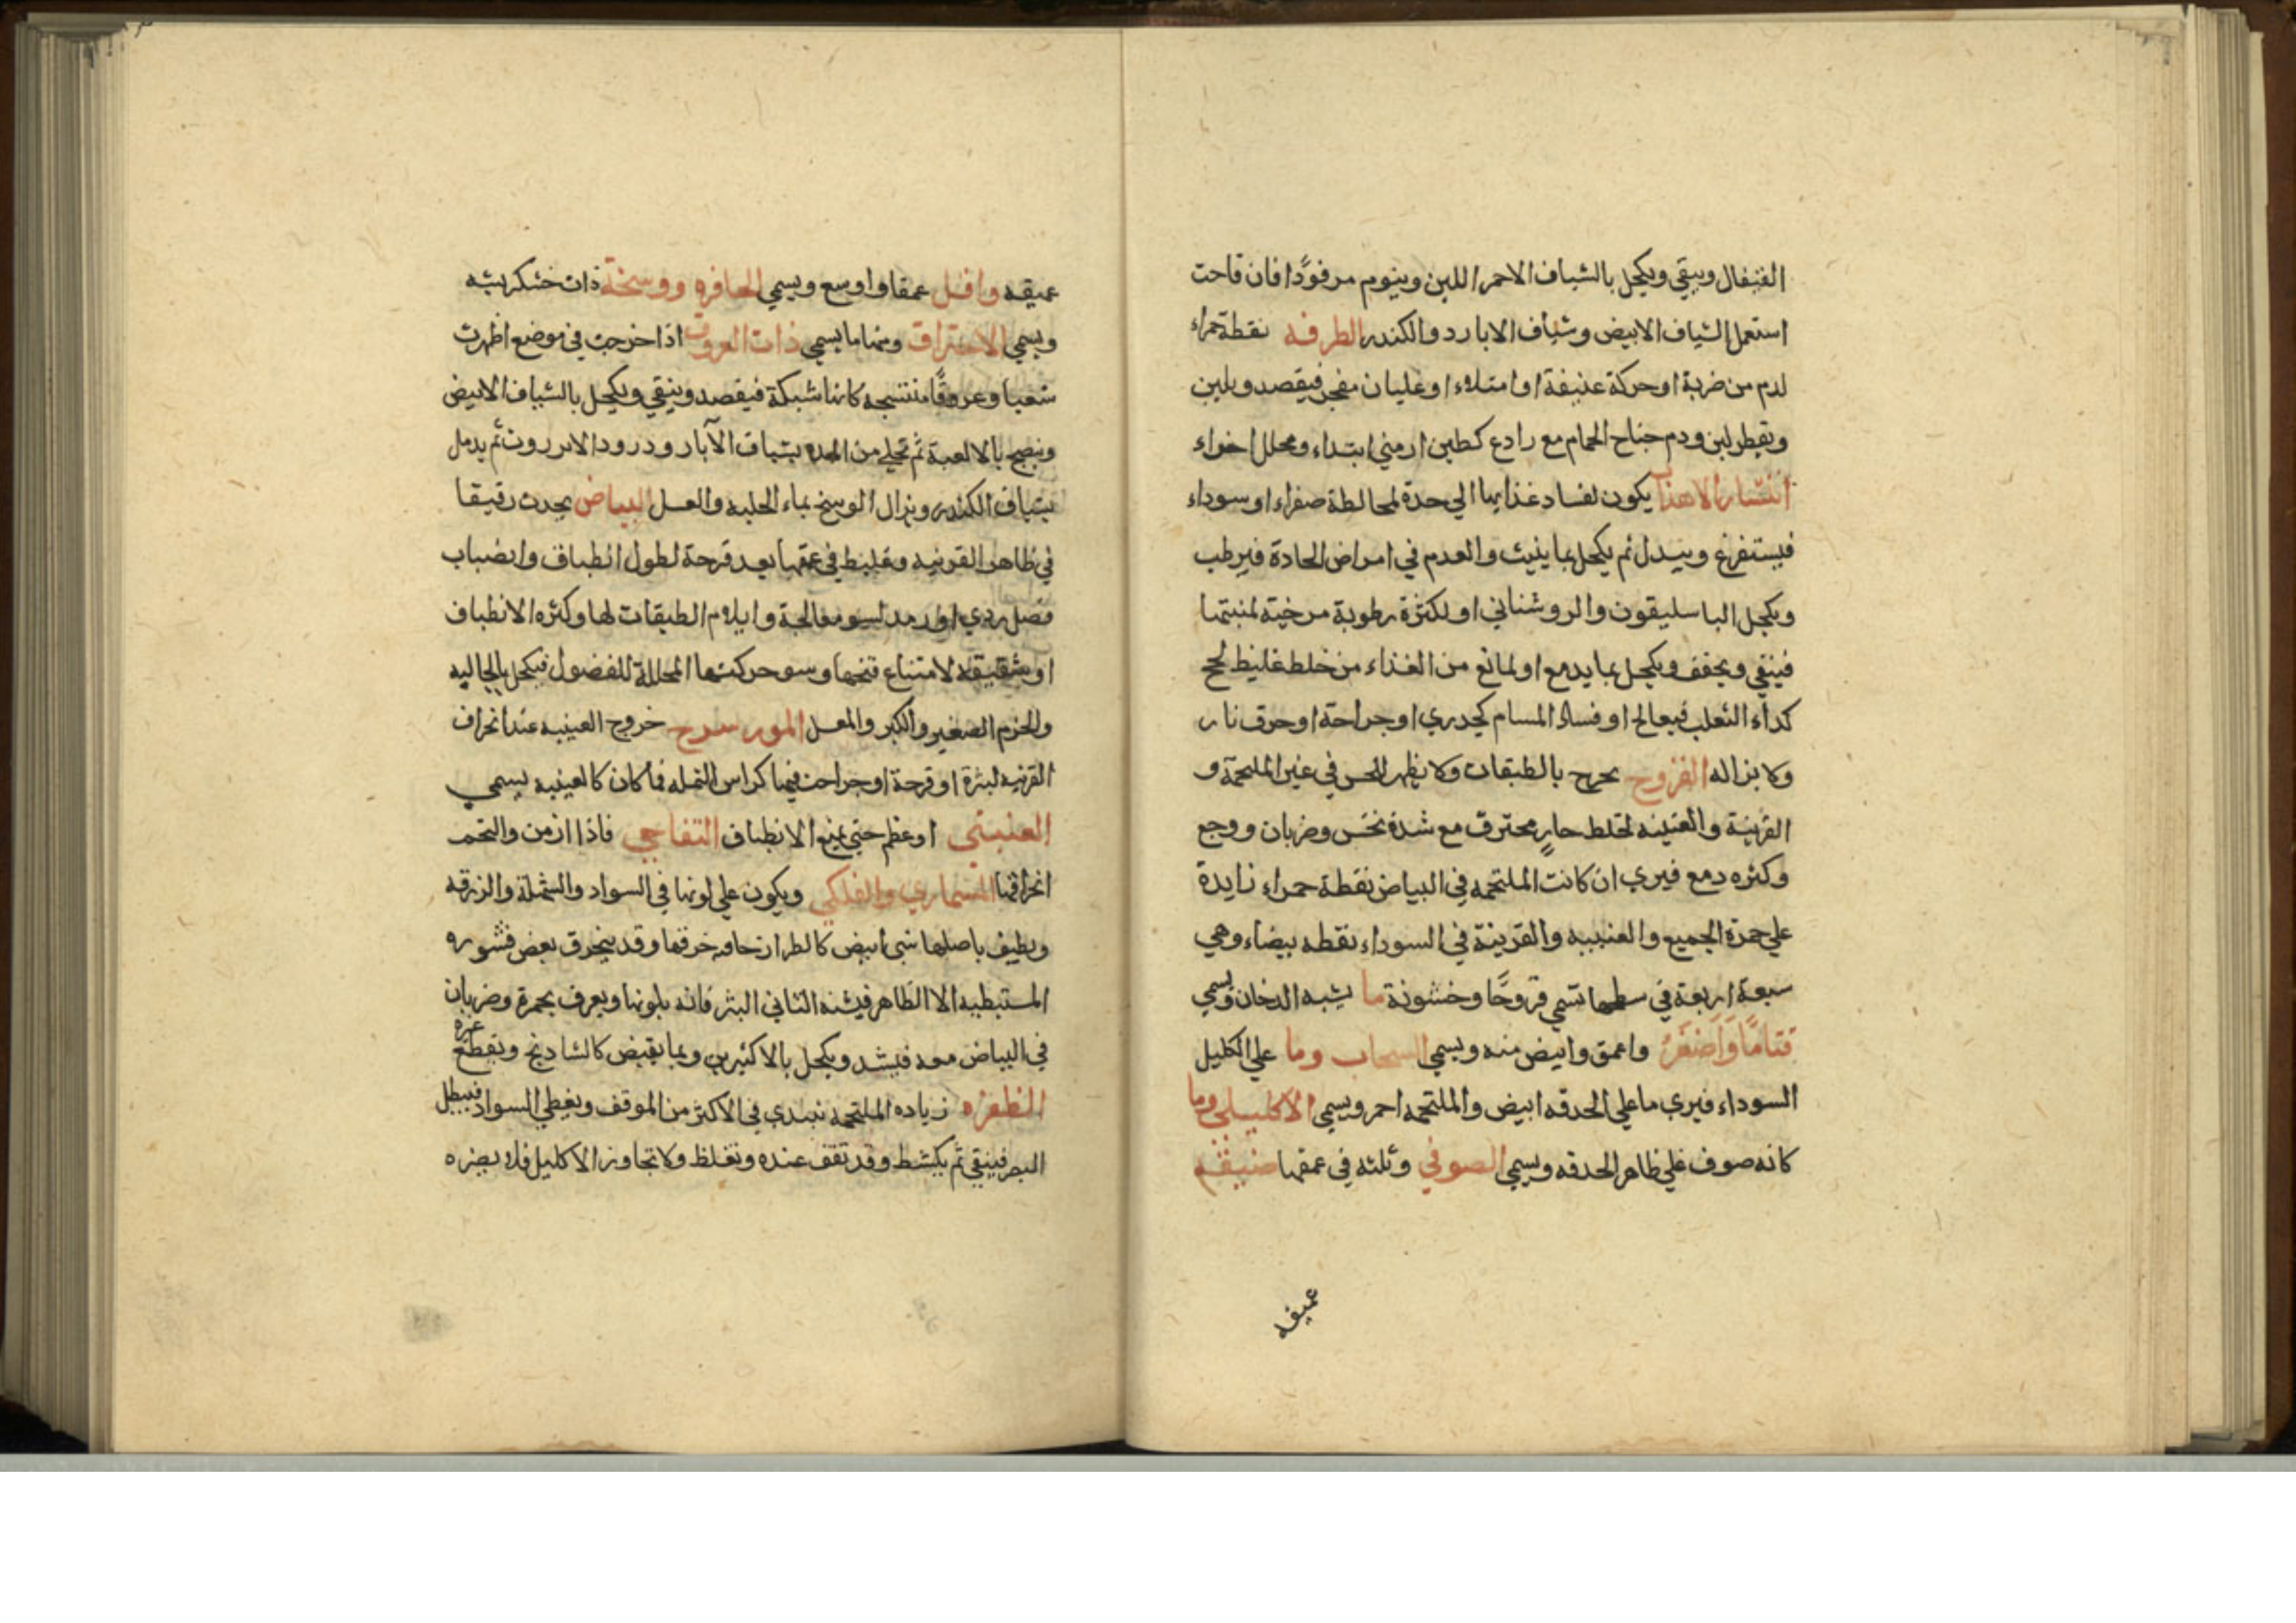 القيفال وينقي ويكحل بالشياف الاحمر اللين وينوم مرفودا فان قاحت
استعمل الشياف الابيض وشياف الابار دوالكندر الطرفه نقطة حمراء
لدم من ضربة او حركة عنيفة او امتلاء او غليان مفجر فيقصد ويلين
ويقطر لبن ودم جناح الحمام مع رادع كطين ارمني ابتداء ومحلل اخراء
انتشار الاهداب يكون لفساد غذايها الي حدة لمخالطة صفراء او سوداء
فيستفرغ ويبدل ثم يكحل بما ينبث والعدم في امراض الحادة فيرطب
ويكحل الباسليقون والروشناني او لكثرة رطوبة مرخية لمنبتها
فينقي ويجفف ويكحل بما يدمع او لمانع من الغذاء من خلط غليظ لحج
كداء الثعلب فيعالج او فساد المسام كجدري او جراحة او حرق نار
ولا يزاله القروح بحرح بالطبقات ولا يظهر للحس في غير الملتحمة و
القرنية والعنبيه لخلط حار محترق مع شدة نخس وضربان ووجع
وكثره دمع فيري ان كانت الملتحمه في البياض نقطة حمراء زايدة
علي حمرة الجميع والعنبيه والقرنية في السوداء نقطه بيضاء وهي
سبعة اربعة في سطحها تسمي قروحًا وخشونة ما يشبه الدخان ويسمي
قتامًا وَاَصْغَرُ واعمق وابيض منه ويسمي السحاب وما علي الاكليل
السوداء فيري ما علي الحدقه ابيض والملتحمه احمر ويسمي الاكليلي وما
كانه صوف علي ظاهر الحدقه ويسمي الصوفي وثلثه في عمقها ضيقه
عميقه
عميقه واقل عمقا واوسع ويسمي الحافره ووسخة ذات خشكريشه
ويسمي الاحتراق ومنها ما يسمي ذات العروق اذا خرجت في موضع اظهرت
شعبا وعروقًا منتسجه كانها شبكة فيقصد وينقي ويكحل بالشياف الابيض
وينضج بالالعبة ثم تجلي من المده بشياف الآبار ودرود الانزروت ثم يدمل
بشياف الكندر ويزال الوسخ بماء الحلبه والعسل البياض يحدث رقيقا
في ظاهر القرنيه وغليظ في عمقها بعد قرحة لطول انطباق وانضباب
فضل ردي او رمد لسو معالجة وايلام الطبقات لها وكثره الانطباق
او شقيقه لامتناع فتحها وسو حركتها المحللة للفضول فيكحل بالجاليه
والحزم الصغير والكبر والمعسل المورسرح خروج العينيه عند انخراق
القرنيه لبثرة او قرحة او جراحت فيها كراس النمله فما كان كالعينيه يسمي
العنبتي او عظم حتي يمنع الانطباق التفاحي فاذا ازمن والتحم
انخراقها المسماري والفلكي ويكون علي لونها في السواد والشهلة والزرقه
ويطيف باصلها شي ابيض كالطراز حافه خرقها وقد ينخرق بعض قشوره
المستبطيه الا الظاهر فيشبه الثاني البثر فانه بلونها ويعرف بحمرة وضربان
في البياض معه فيشد ويكحل بالاكثيرين وبما يقبض كالشادنج وتقطع غيره
الظفره زياده الملتحمه تبتدي في الاكثر من الموقف ويغطي السواد فيبطل
البصر فينقي ثم يكشط وقد تقف عنده وتغلظ ولا تجاوز الاكليل فلا يضره